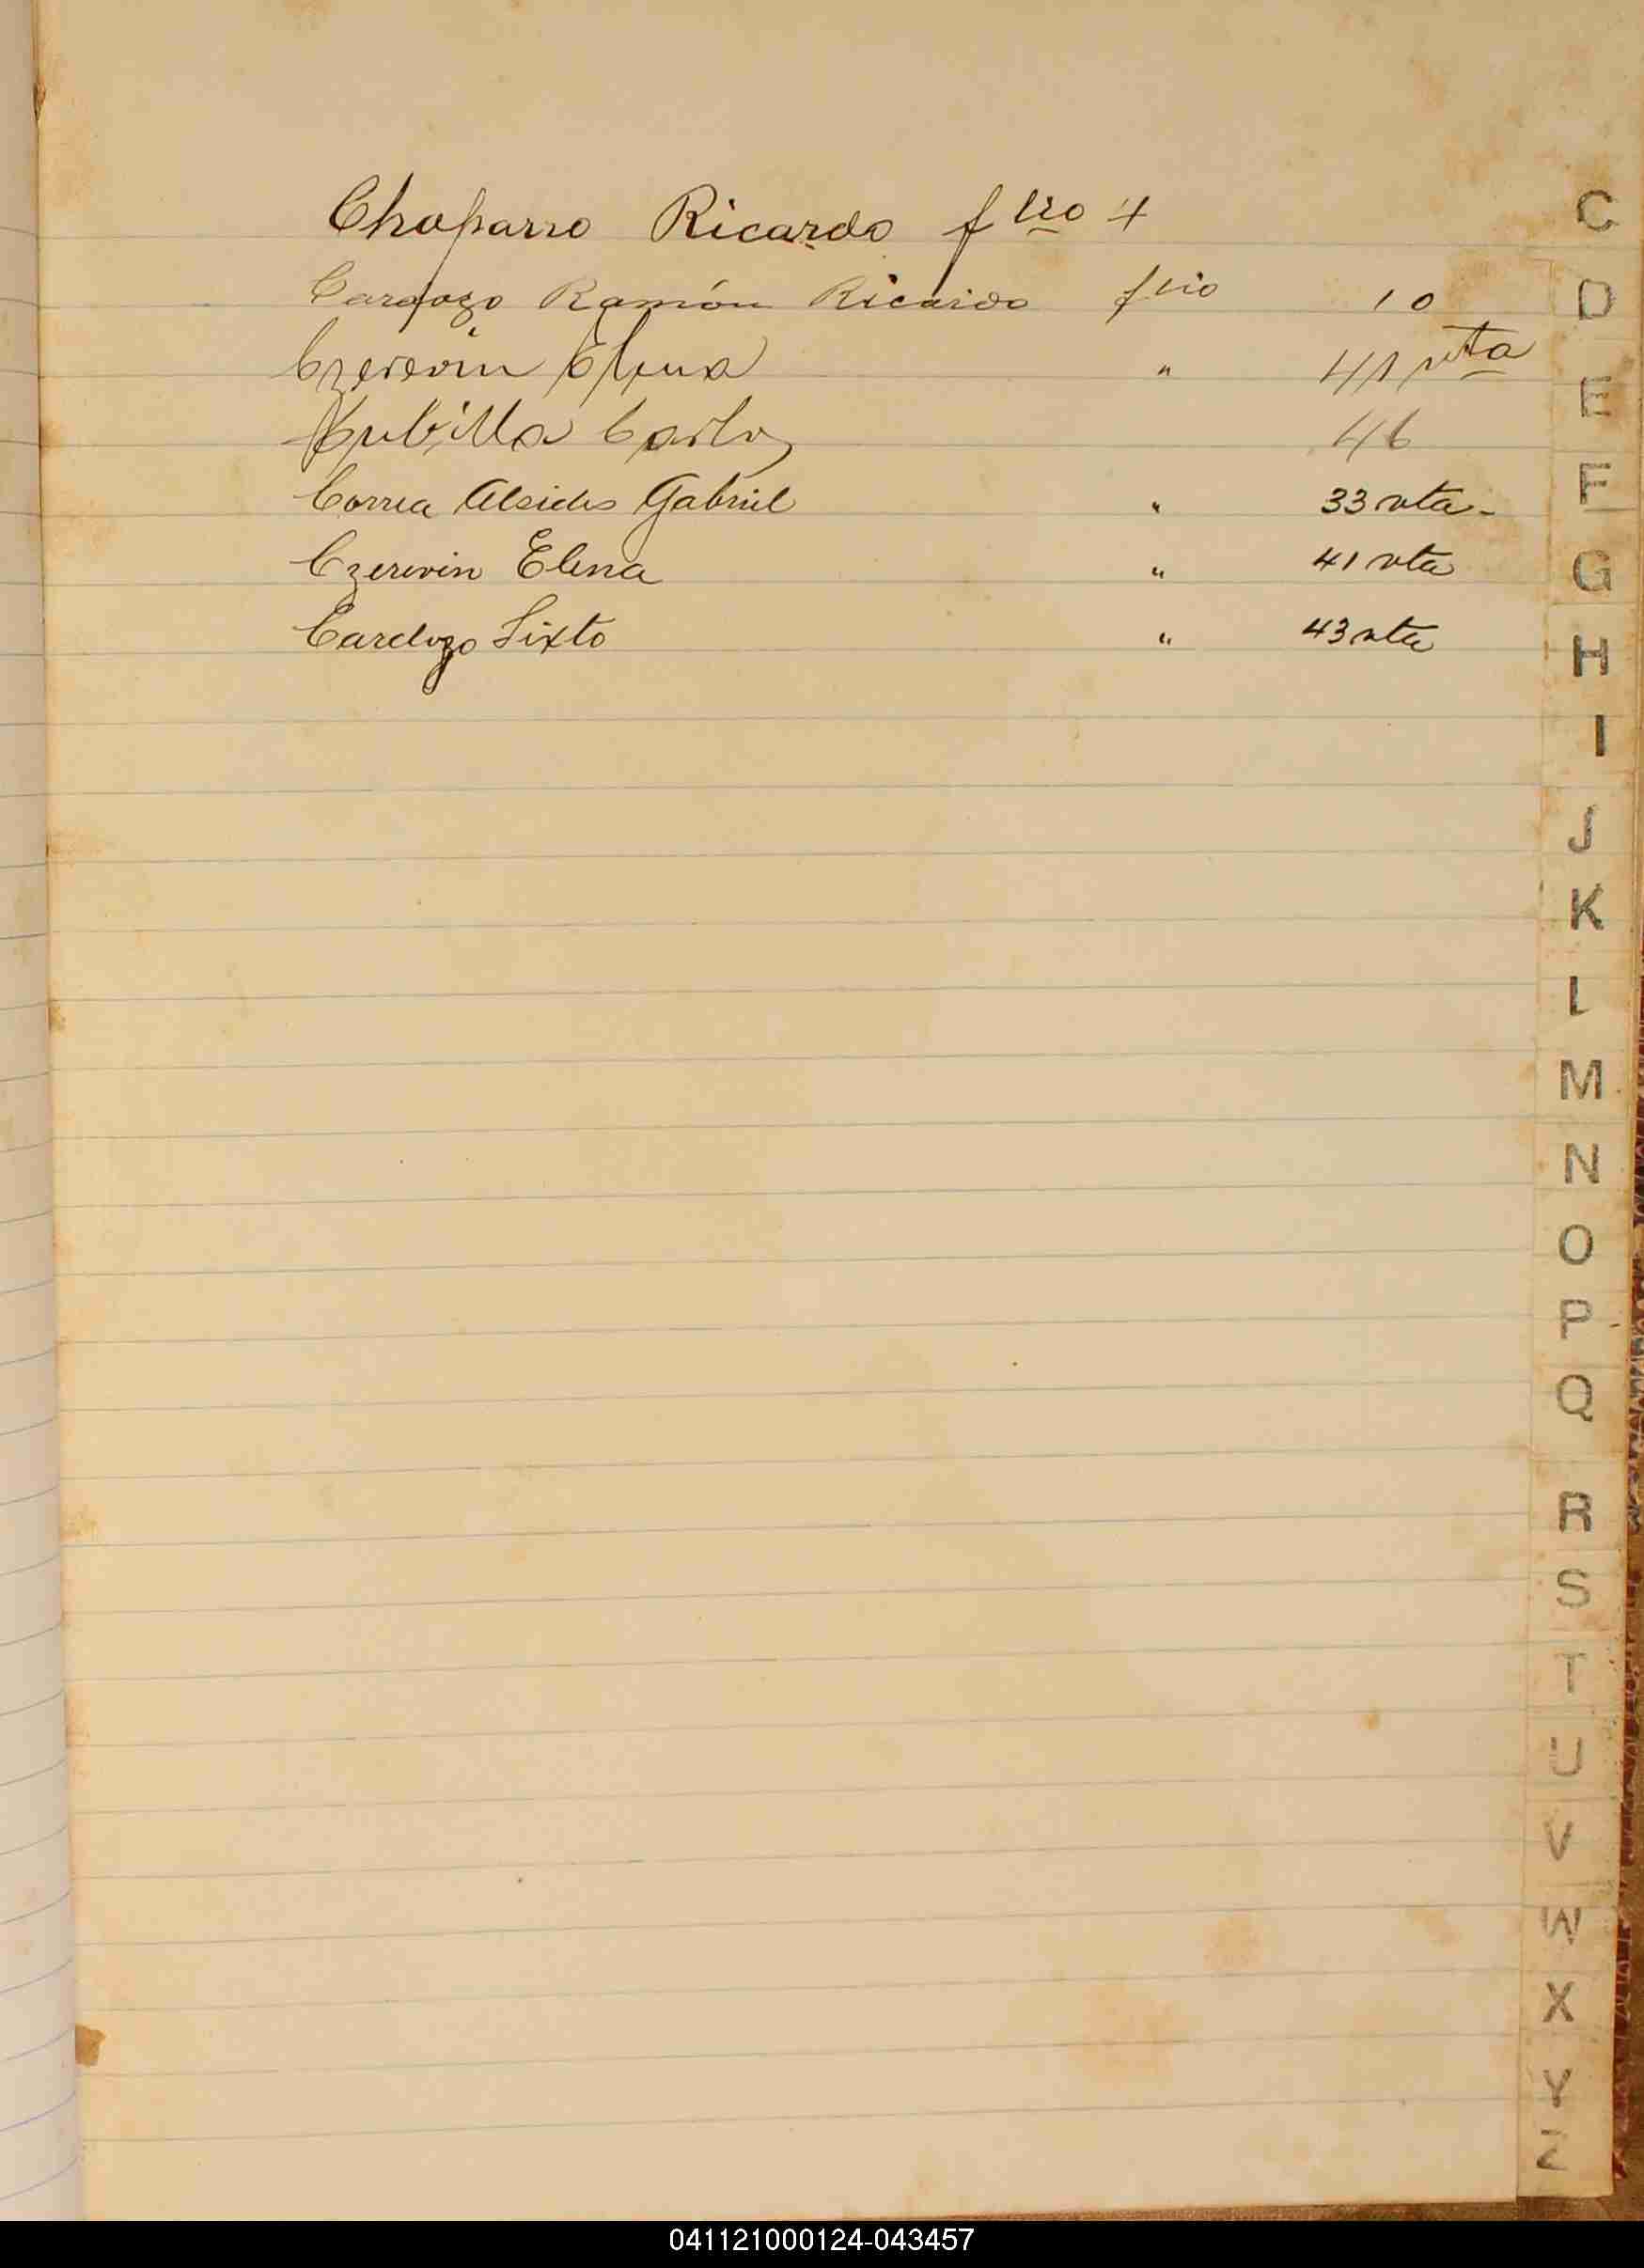 Chaparro Ricardo flio 4
Cardozo Ramón Ricardo flio 10
Czerevin Elena " 41 vta
Cubilla Carlos 46
Correa Alcides Gabriel " 33 vta-
Czerevin Elena " 41 vta
Cardozo Sixto " 43 vta
C
D
E
F
G
H
I
J
K
L
M
N
O
P
Q
R
S
T
U
V
W
X
Y
Z
041121000124-043457